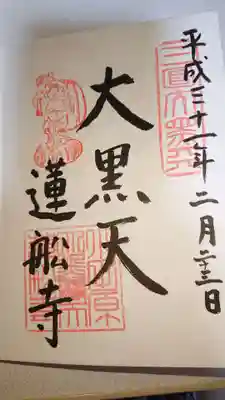 平成三十一年二月二十三日
大黒天
蓮船寺